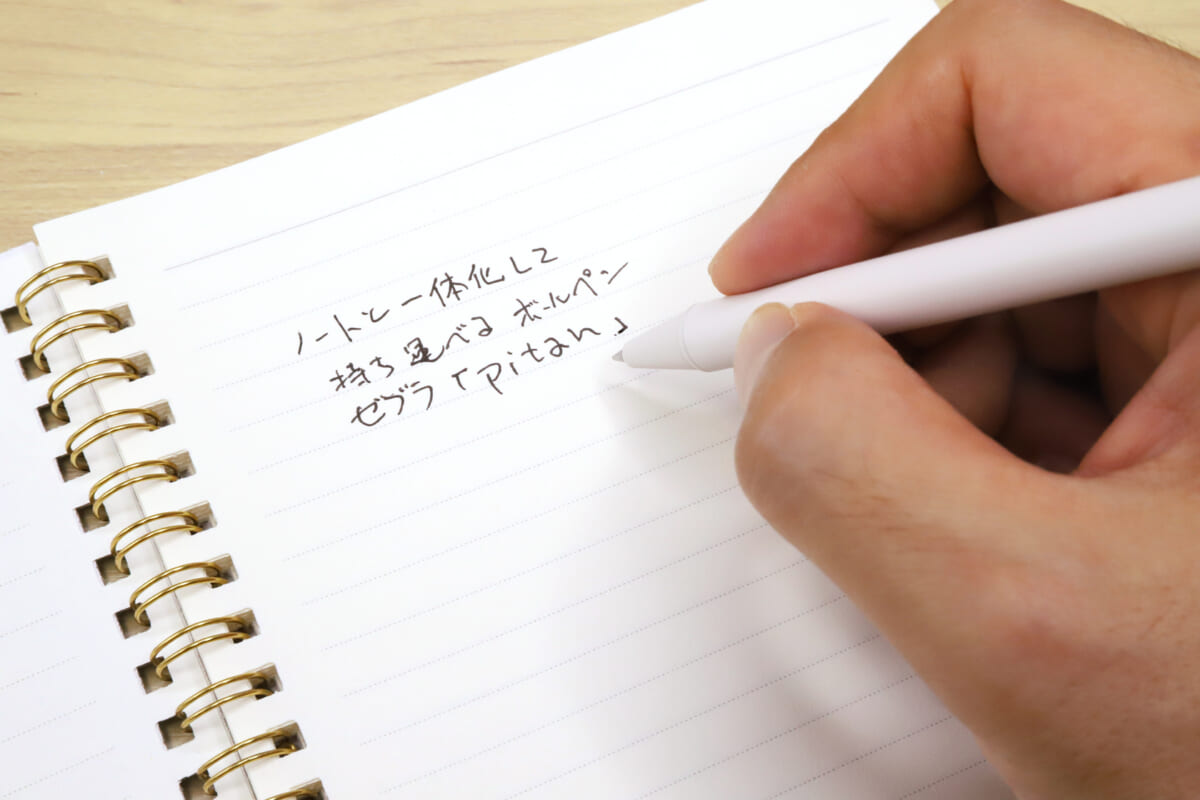 ノートと一体化して
持ち運べるボールペン
ゼブラ「pitan」